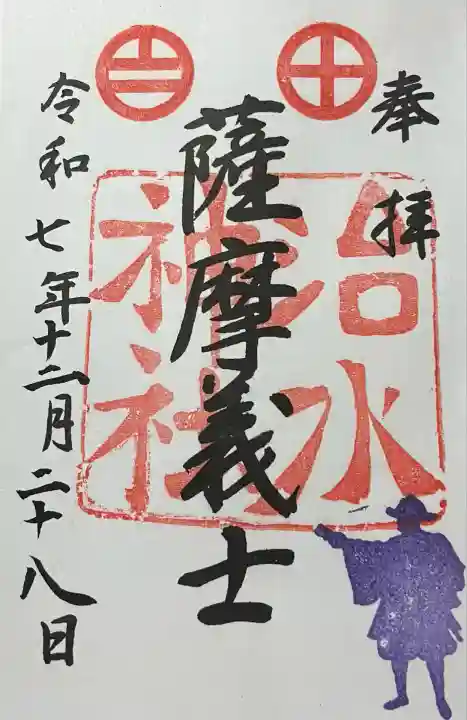 奉拝
薩摩義士
治水
神社
令和七年十二月二十八日